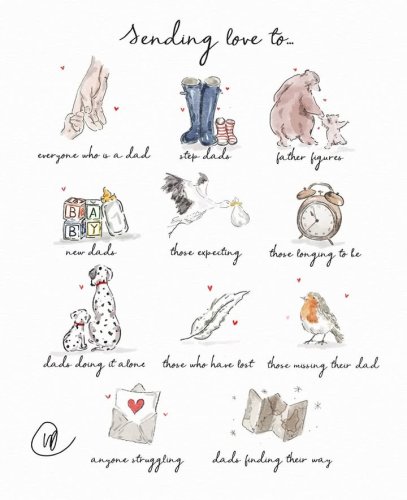 Sending love to...
everyone who is a dad
step dads
father figures
BA
BY
new dads
those expecting
those longing to be
dads doing it alone
those who have lost
those missing their dad
anyone struggling
dads finding their way